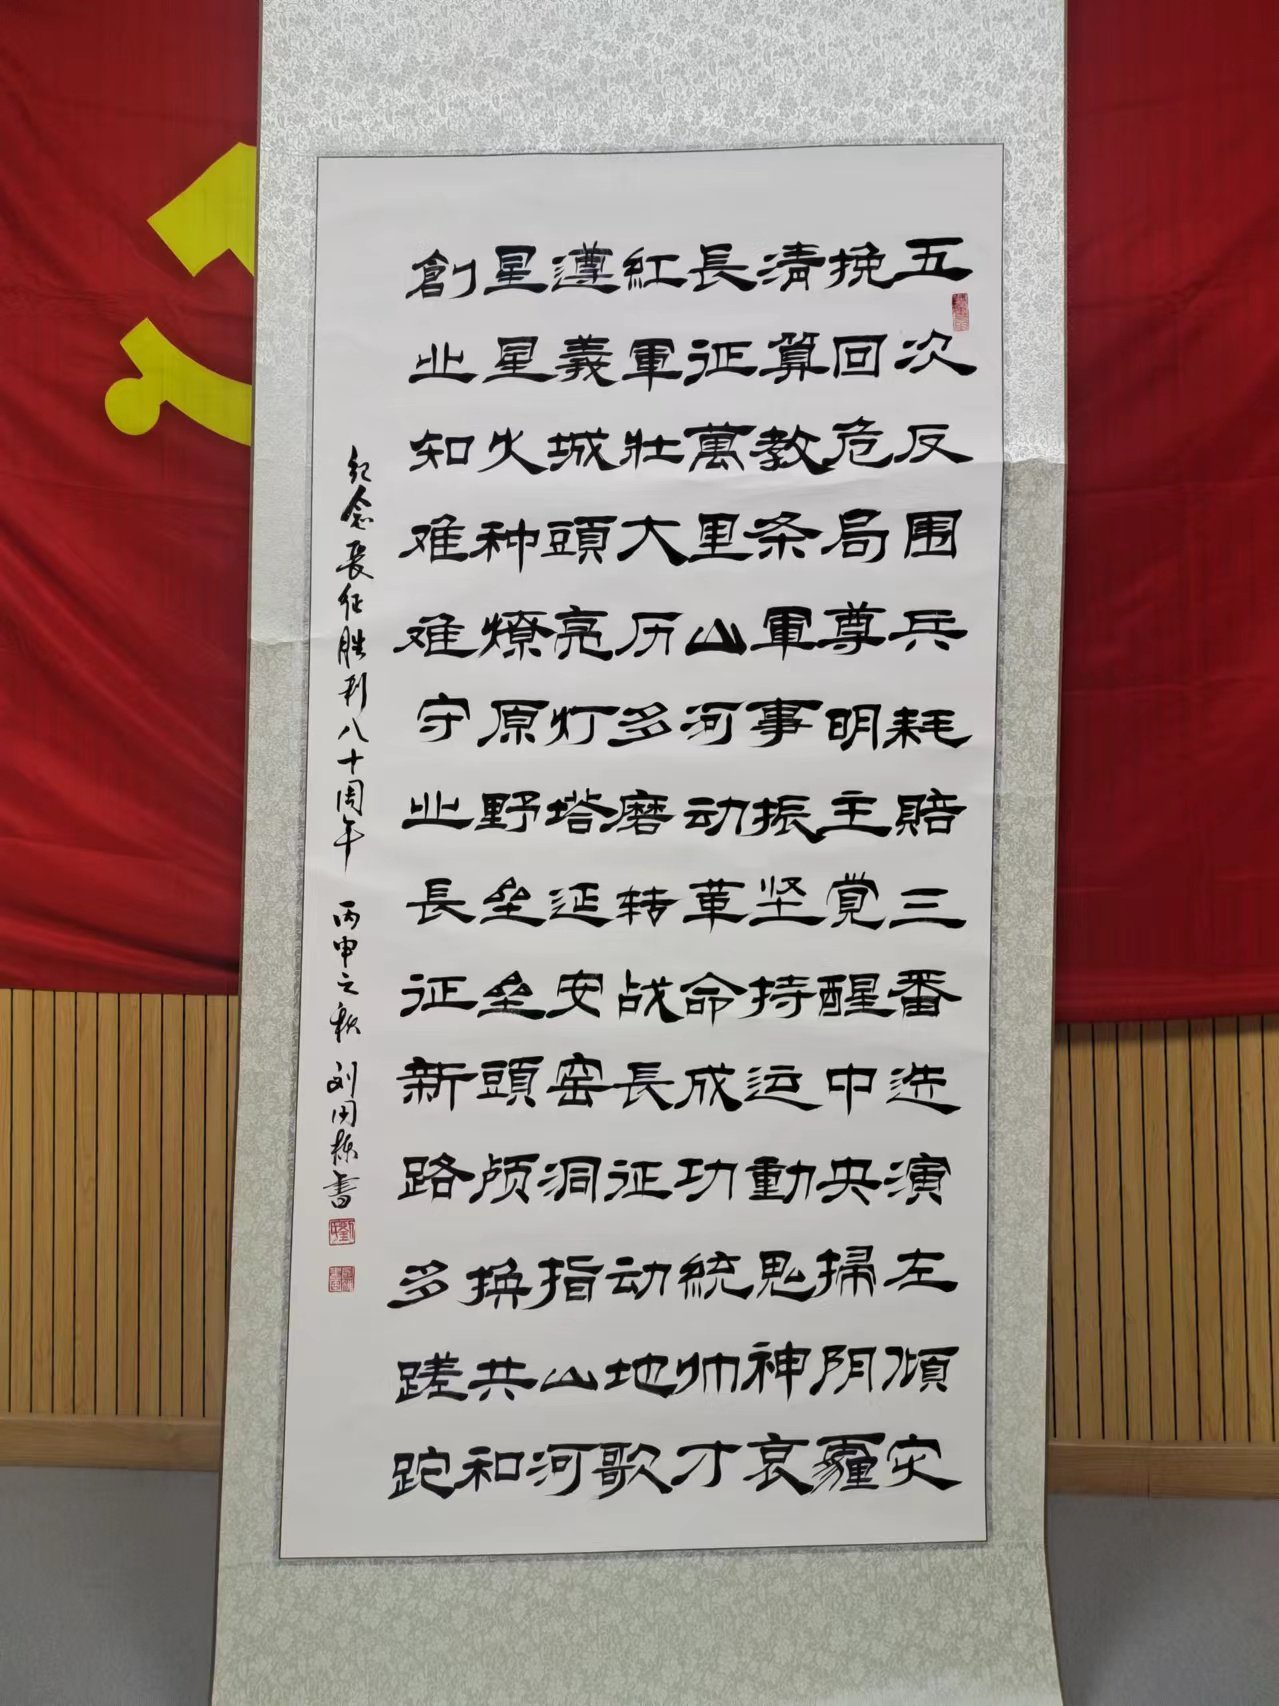 五次反围兵耗賠三番迭演左倾灾
挽回危局尊明主覚醒中央掃阴霾
清算教条軍事振坚持运動鬼神哀
長征萬里山河动革命成功統帅才
紅軍壮大历多磨转战長征动地歌
遵義城頭亮灯塔延安窑洞指山河
星星火种燎原野垒垒頭颅换共和
創业知难难守业長征新路多蹉跎
纪念長征胜利八十周年 丙申之秋 刘国栋書